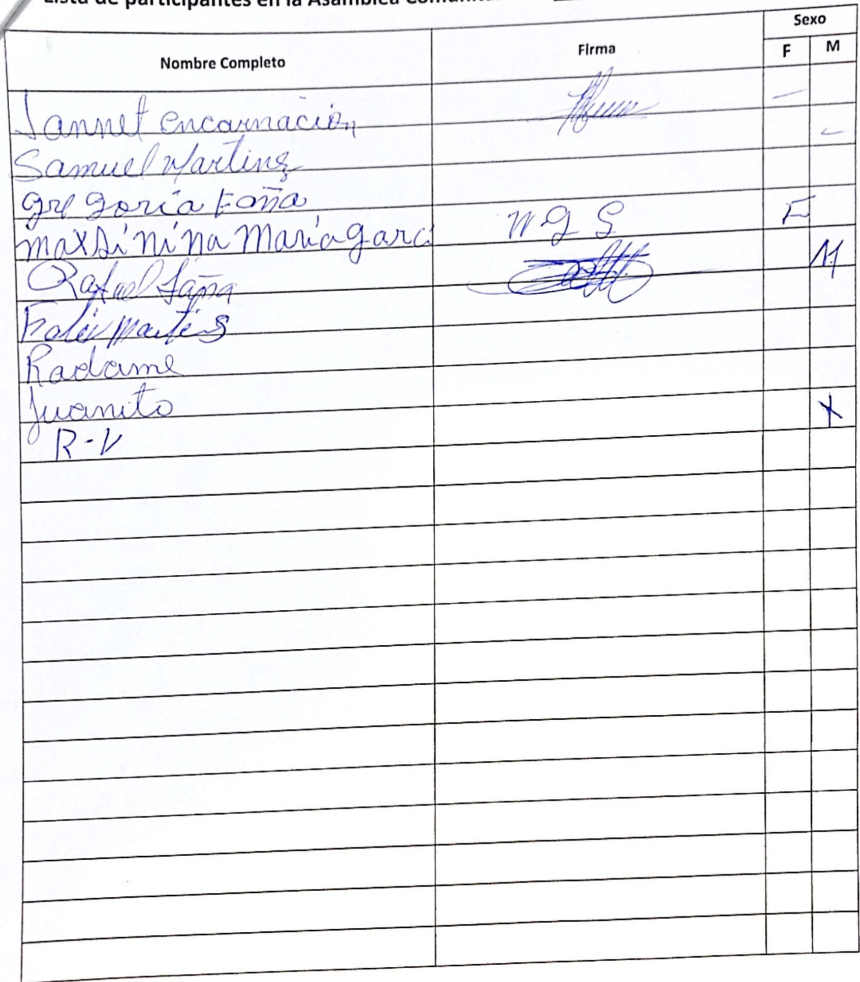 Lista de participantes en la Asamblea
Nombre Completo Firma Sexo
F M
Jannet encarnación
Samuel Martinz
gregoria Faña
maxsinina maria garc M g S F
Rafael Faña M
Martes
Radame
Juanito X
R-V